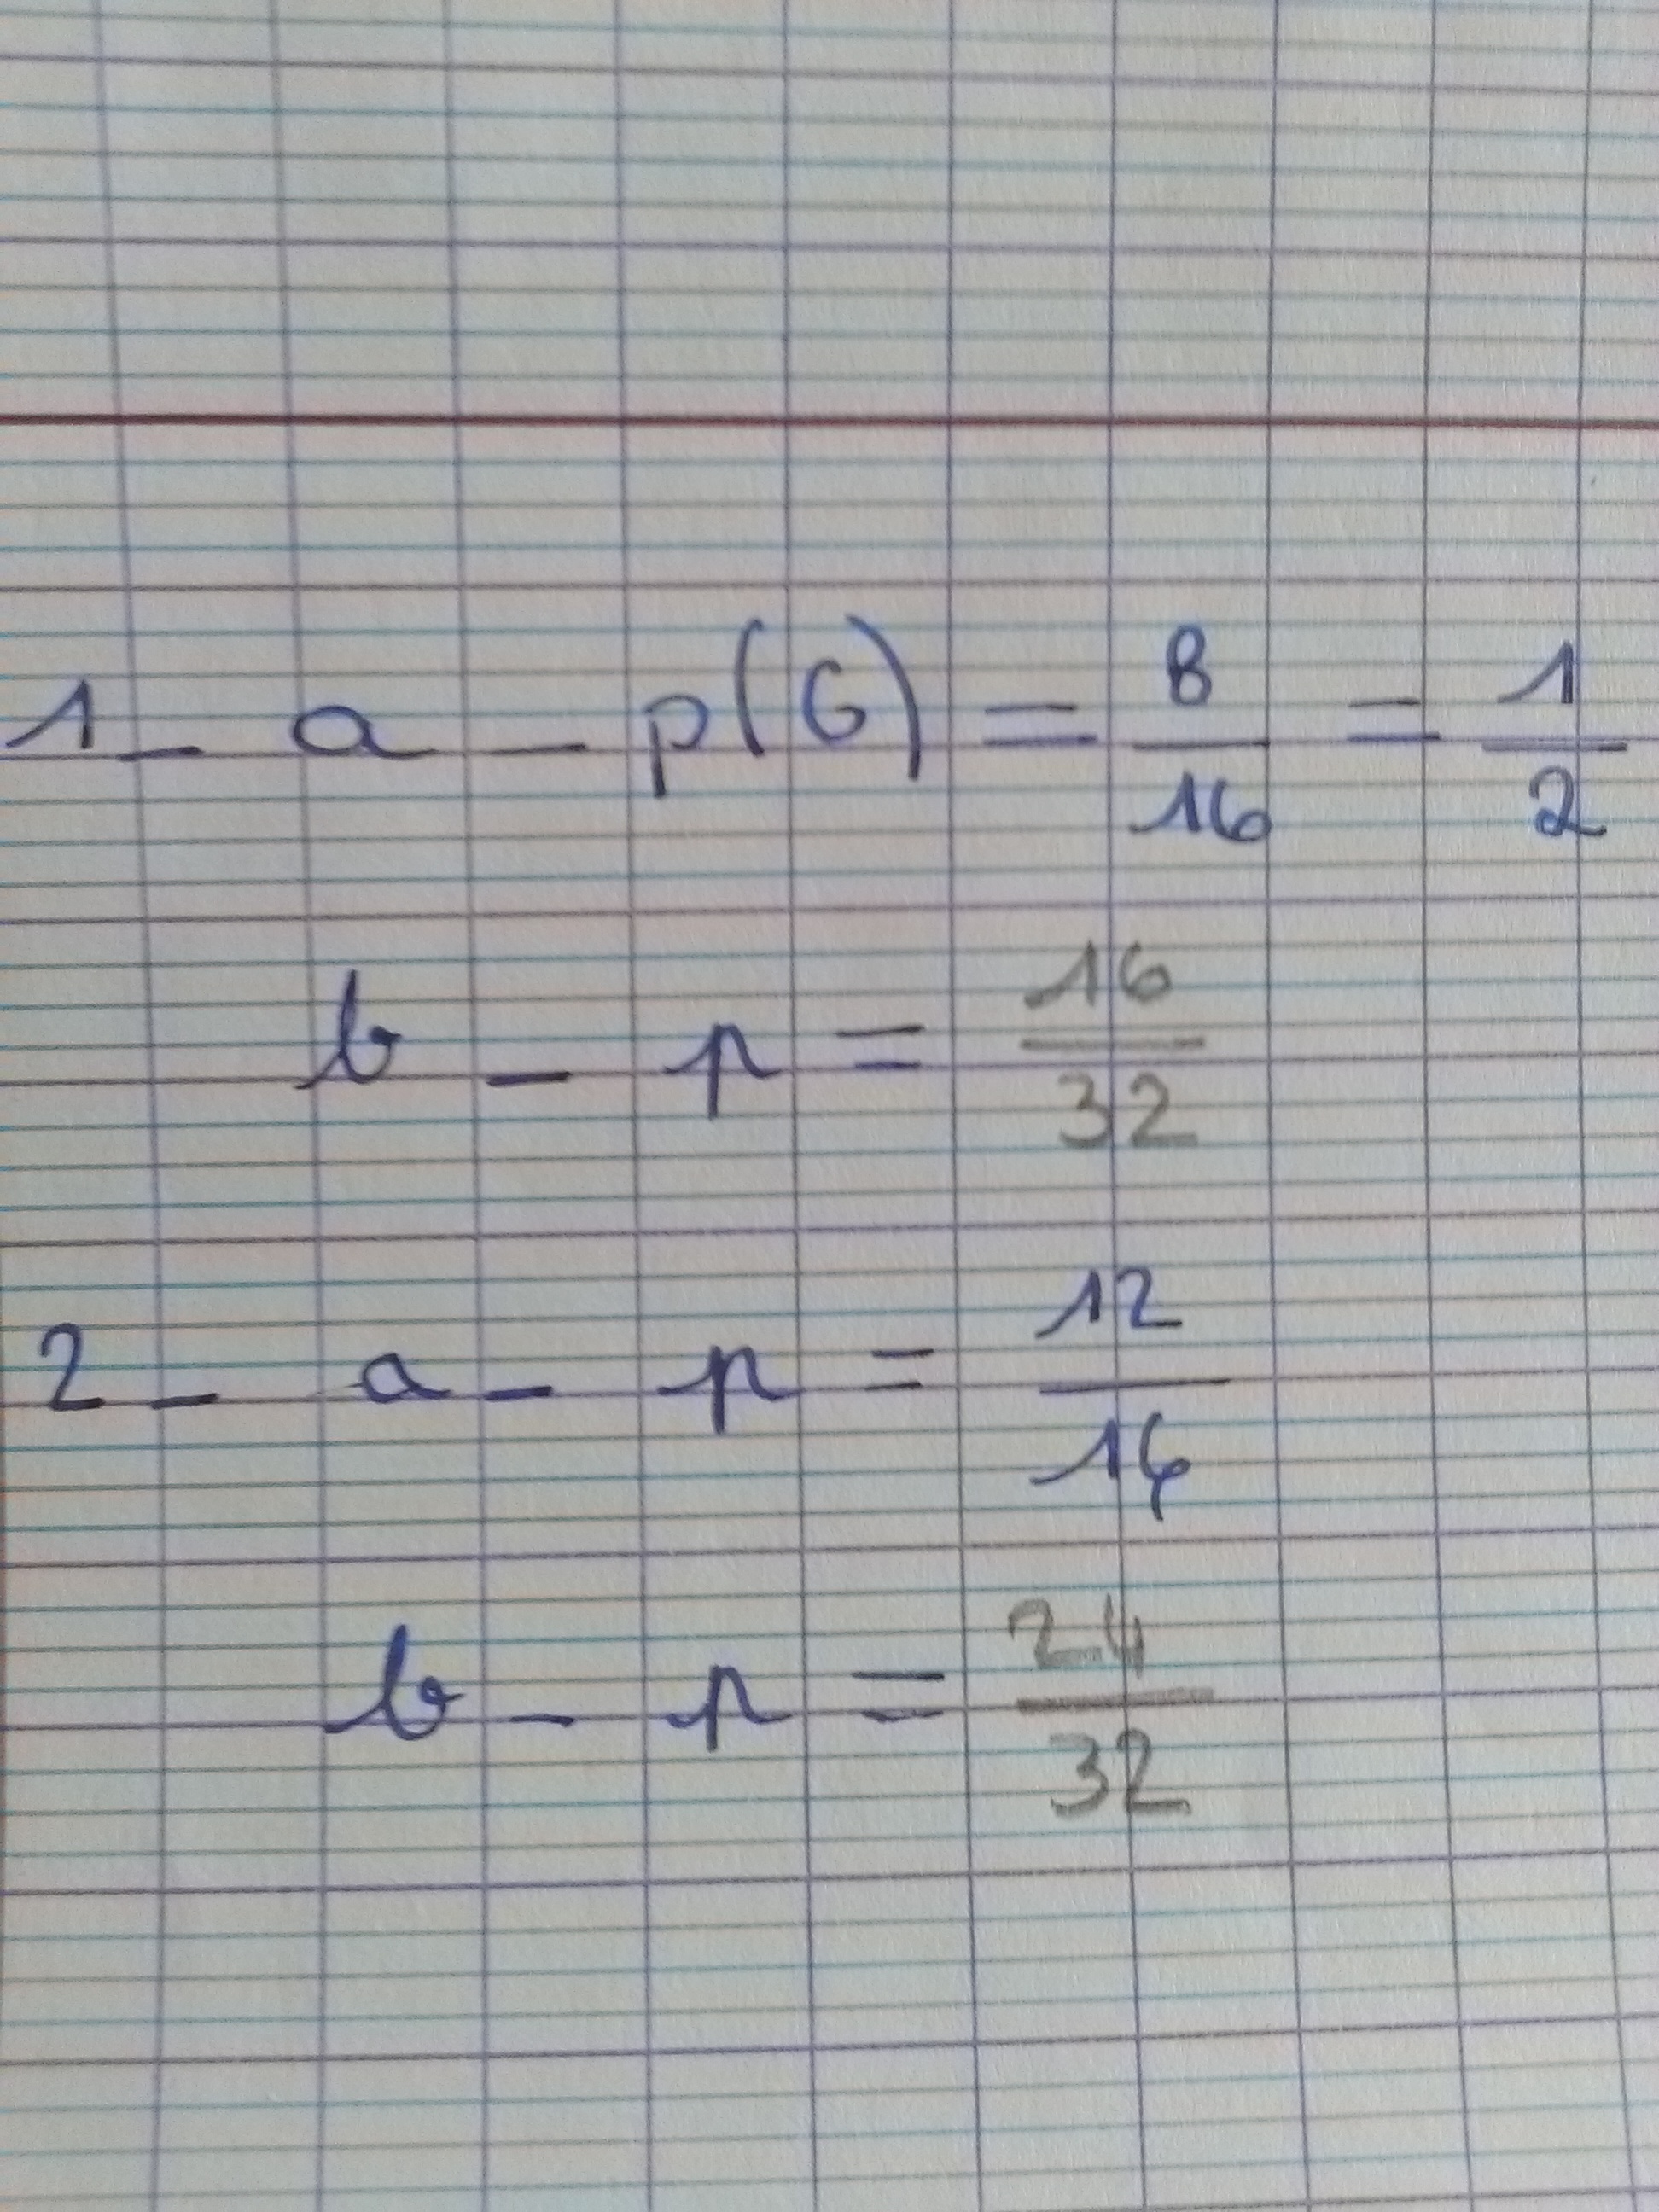 1_ a _ p(G) = 8/16 = 1/2
b _ p = 16/32
2_ a _ p = 12/16
b _ p = 24/32